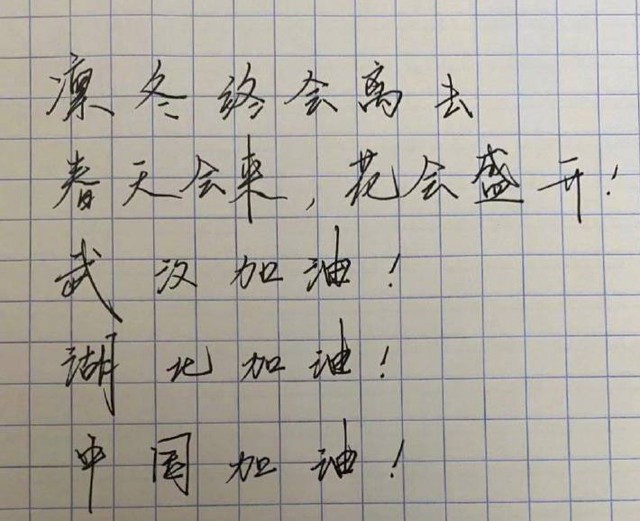 凛冬终会离去
春天会来,花会盛开!
武汉加油!
湖北加油!
中国加油!